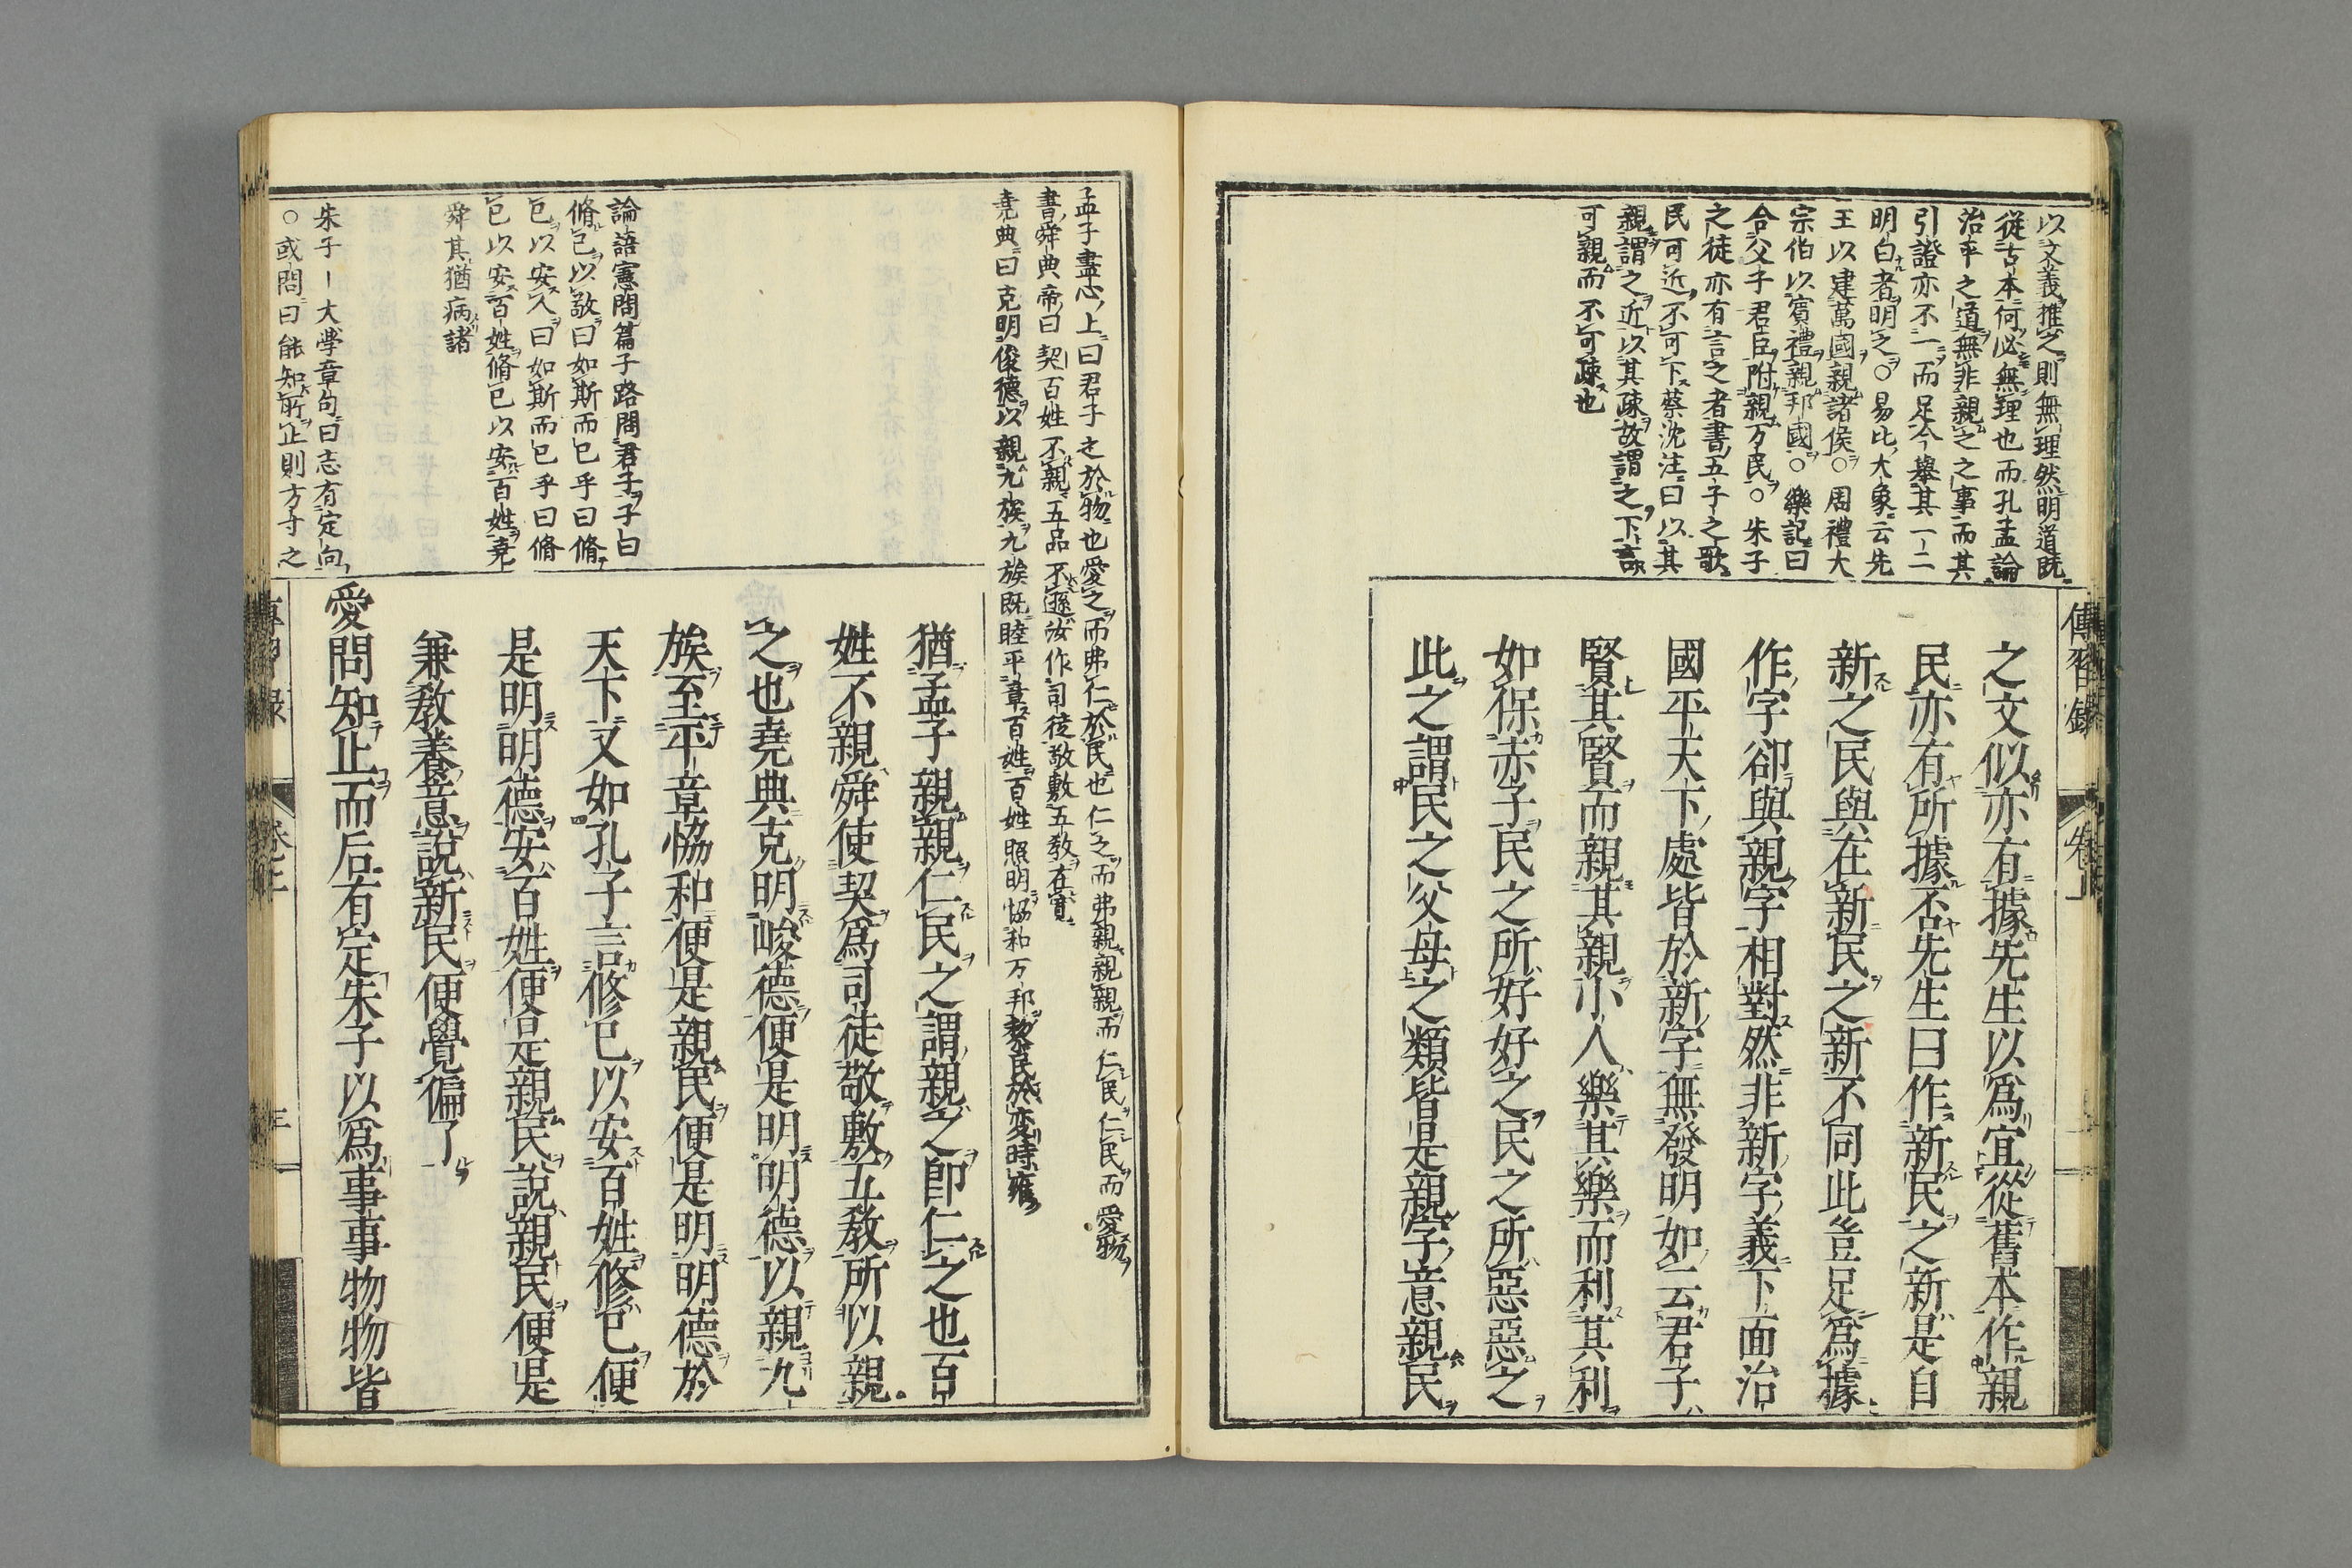 以文義推之則無理然明道既
從古本何必無理也而孔孟論
治平之道無非親之之事而其
引證亦不一而足今舉其一二
明白者明之○易比大象云先
王以建萬國親諸侯○周禮大
宗伯以賓禮親邦國○樂記曰
合父子君臣附親万民○朱子
之徒亦有言之者書五子之歌
民可近不可下蔡沈注曰以其
親謂之近以其疎故謂之下言
可親而不可疎也
傳習錄
卷上
之文似亦有據先生以爲宜從舊本作親
民亦有所據否先生曰作新民之新是自
新之民與在新民之新不同此豈足爲據
作字卻與親字相對然非新字義下面治
國平天下處皆於新字無發明如云君子
賢其賢而親其親小人樂其樂而利其利
如保赤子民之所好好之民之所惡惡之
此之謂民之父母之類皆是親字意親民
孟子盡心上曰君子之於物也愛之而弗仁於民也仁之而弗親親親而仁民仁民而愛物
書舜典帝曰契百姓不親五品不遜汝作司徒敬敷五教在寬
堯典曰克明俊德以親九族九族既睦平章百姓百姓照明協和万邦黎民於変時雍
論語憲問篇子路問君子子曰
脩己以敬曰如斯而已乎曰脩
己以安人曰如斯而已乎曰脩
己以安百姓脩己以安百姓堯
舜其猶病諸
朱子ー大學章句曰志有定向
○或問曰能知所止則方寸之
猶孟子親親仁民之謂親之即仁之也百
姓不親舜使契爲司徒敬敷五教所以親
之也堯典克明峻德便是明明德以親九
族至平章協和便是親民便是明明德於
天下又如孔子言修己以安百姓修己便
是明明德安百姓便是親民說親民便是
兼教養意說新民便覺偏了
愛問知止而后有定朱子以爲事事物物皆
卷之上
三